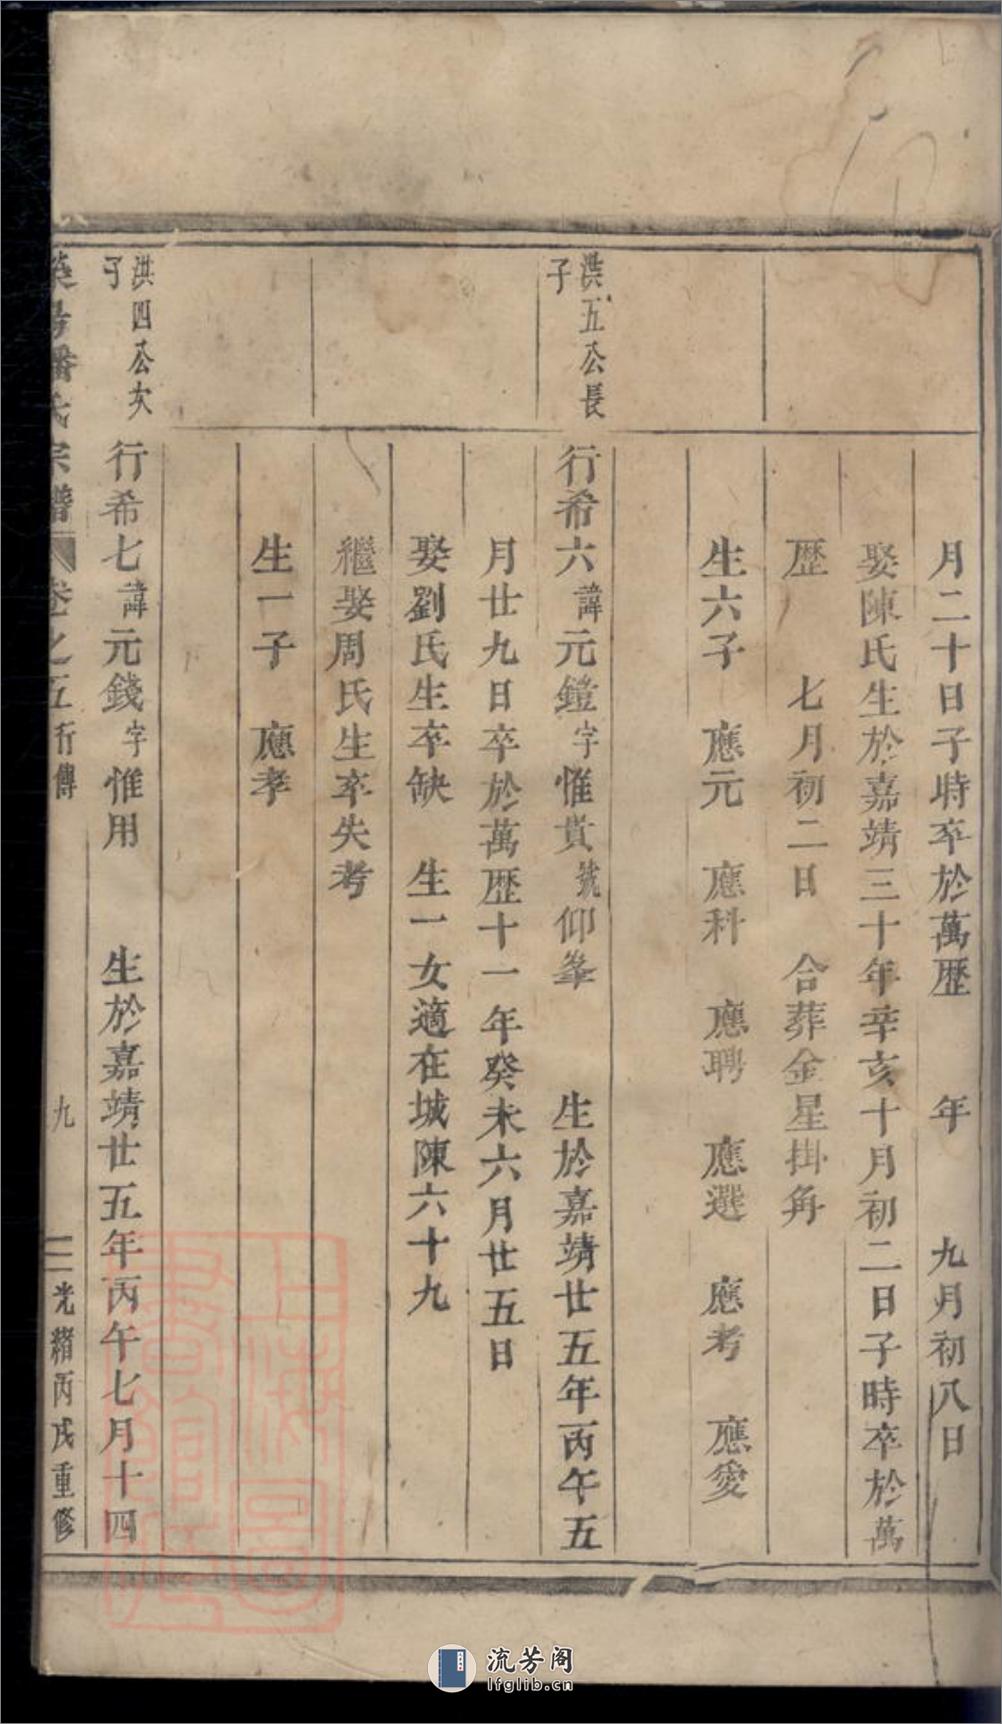 月二十日子時卒於萬歷 年 九月初八日
娶陳氏生於嘉靖三十年辛亥十月初二日子時卒於萬
歷 七月初二日 合葬金星掛角
生六子 應元 應科 應聘 應選 應考 應愛
洪五公長子
行希六諱元鎧字惟貴號仰峯 生於嘉靖廿五年丙午五
月廿九日卒於萬歷十一年癸未六月廿五日
娶劉氏生卒缺 生一女適在城陳六十九
繼娶周氏生卒失考
生一子 應孝
洪四公次子
行希七諱元錢字惟用 生於嘉靖廿五年丙午七月十四
滎陽潘氏宗譜 卷之五行傳 九 光緒丙戌重修
上海圖書館藏
流芳阁
lfglib.cn